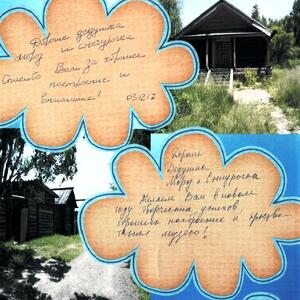 Добрые дедушка
Мороз и снегурочка
Спасибо Вам за хорошее
настроение и
внимание! 05.12.17
Дедушка
Мороз и Снегурочка
Желаем Вам в новом
году творческих успехов
хорошего настроения и процве-
тания музею!